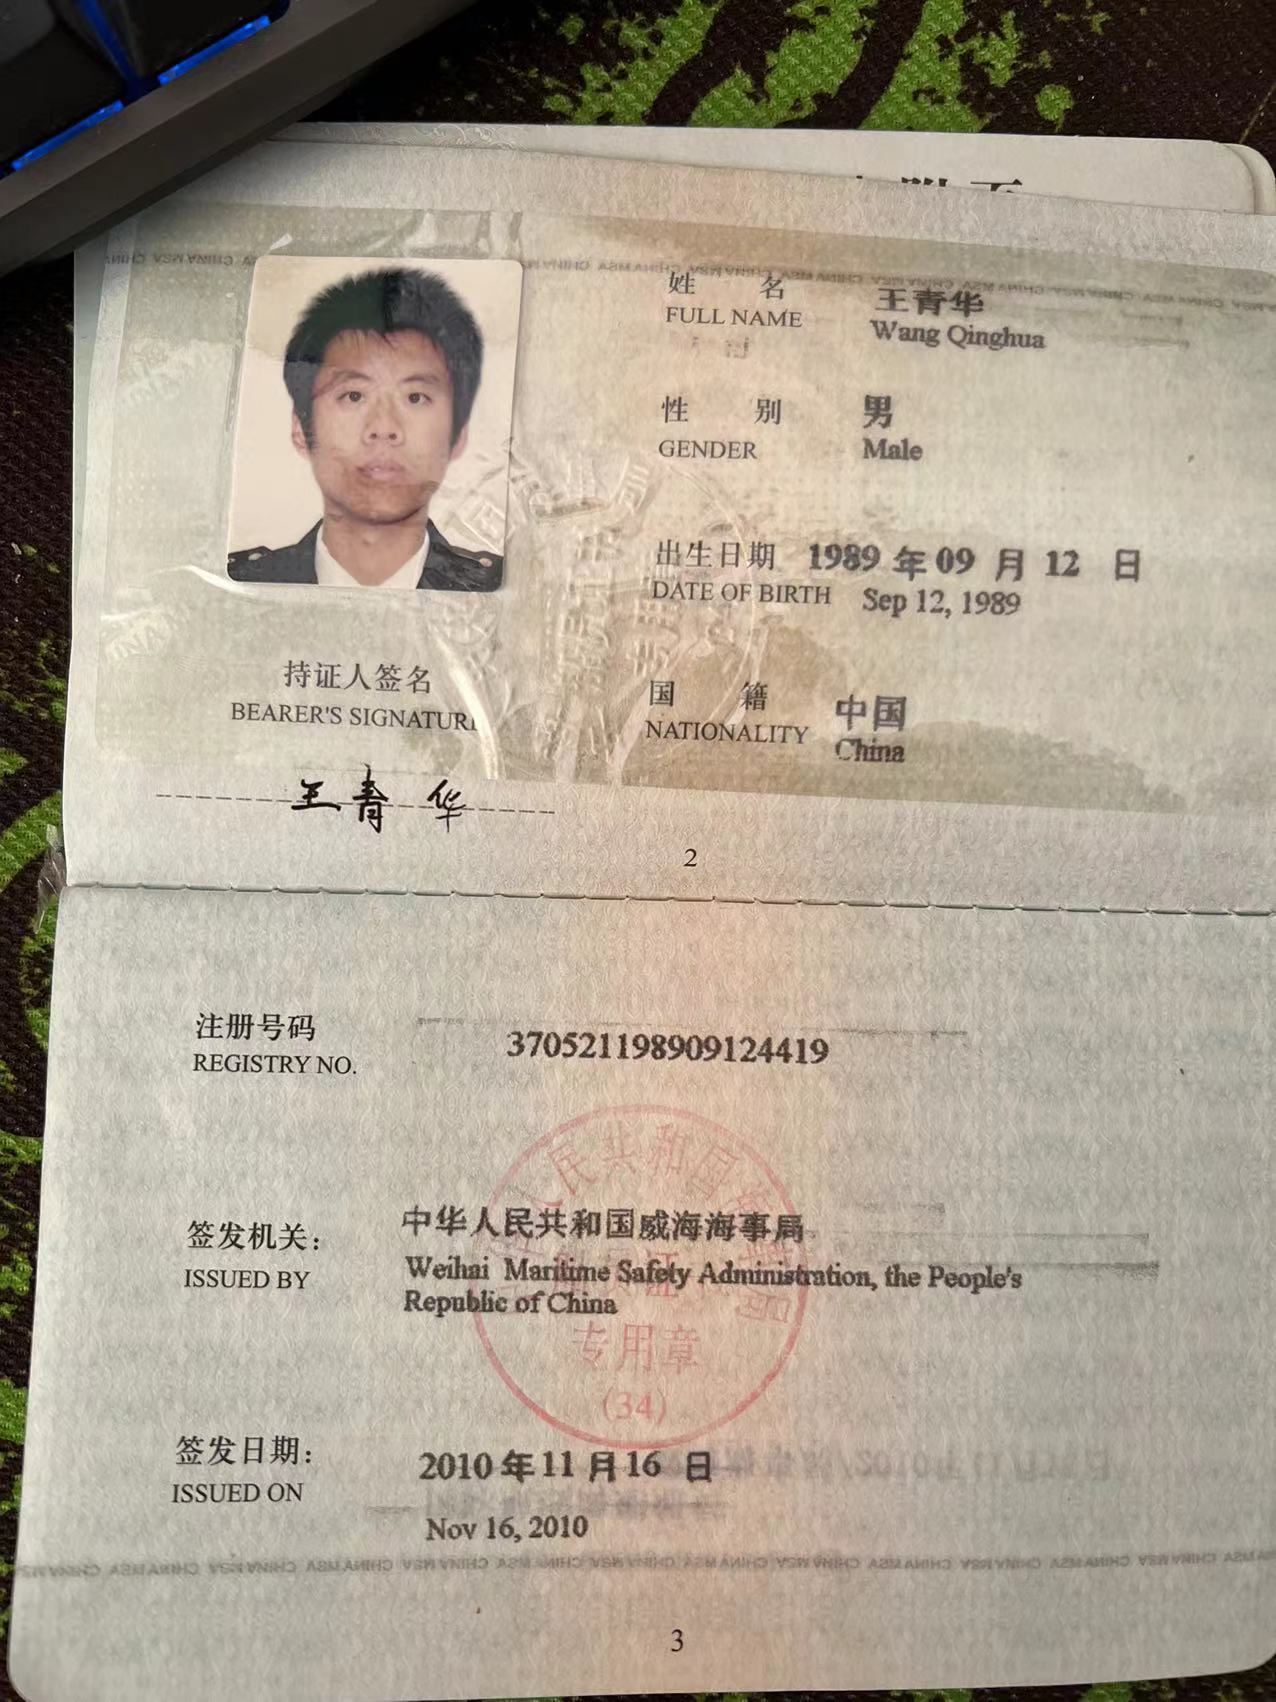 姓 名 王青华
FULL NAME Wang Qinghua
性 别 男
GENDER Male
出生日期 1989 年 09 月 12 日
DATE OF BIRTH Sep 12, 1989
持证人签名
BEARER'S SIGNATURE
国 籍 中国
NATIONALITY China
王青华
2
注册号码
REGISTRY NO. 370521198909124419
签发机关： 中华人民共和国威海海事局
ISSUED BY Weihai Maritime Safety Administration, the People's
Republic of China
专用章
(34)
签发日期： 2010 年 11 月 16 日
ISSUED ON Nov 16, 2010
CHINA MSA CHINA MSA CHINA MSA
3